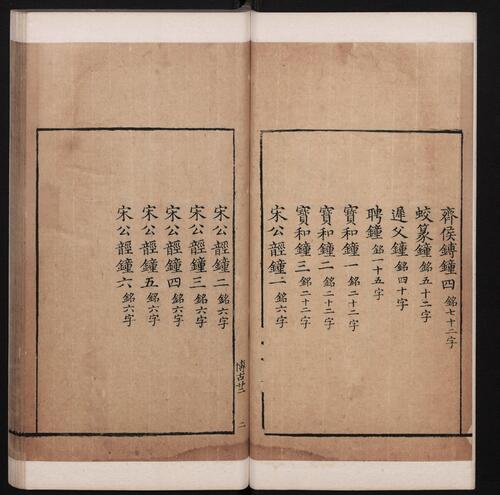 齊侯鎛鐘四 銘七十二字
蛟篆鐘 銘五十二字
遲父鐘 銘四十字
聘鐘 銘一十五字
寶和鐘一 銘二十二字
寶和鐘二 銘二十二字
寶和鐘三 銘二十二字
宋公䪫鐘一 銘六字
宋公䪫鐘二 銘六字
宋公䪫鐘三 銘六字
宋公䪫鐘四 銘六字
宋公䪫鐘五 銘六字
宋公䪫鐘六 銘六字
博古廿二
二